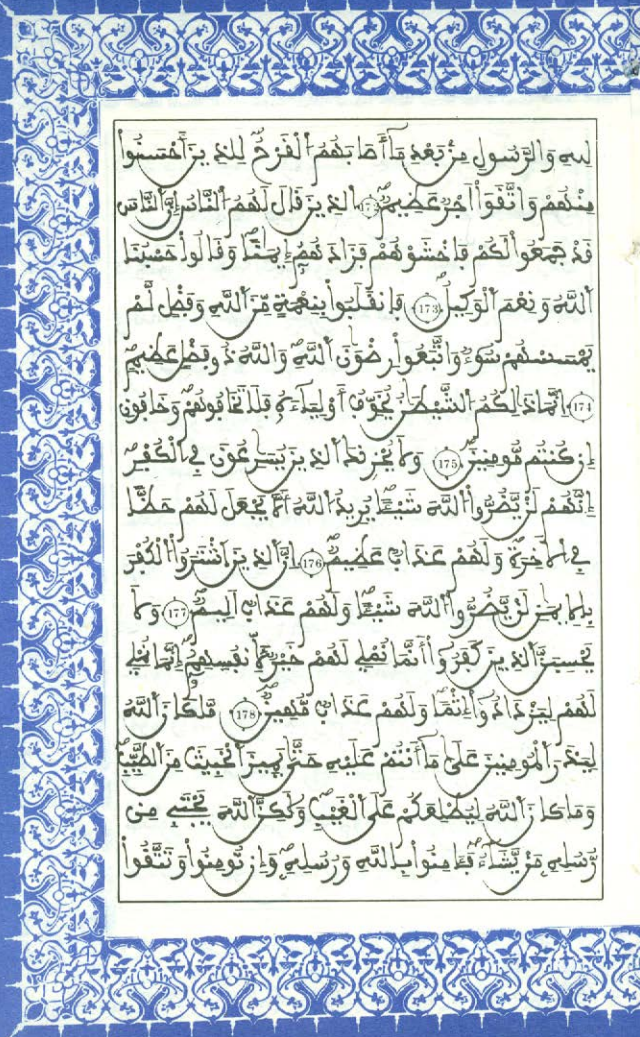 لِلهِ وَالرَّسُولِ مِنۢ بَعْدِ مَآ أَصَابَهُمُ اَلْقَرْحُ لِلذِينَ أَحْسَنُوا
مِنْهُمْ وَاتَّقَوَا اَجْرٌ عَظِيمٌ اَلذِينَ قَالَ لَهُمُ اَلنَّاسُ إِنَّ اَلنَّاسَ
قَدْ جَمَعُوا لَكُمْ فَاخْشَوْهُمْ فَزَادَهُمُ إِيمَٰناً وَقَالُوا حَسْبُنَا
اَللَّهُ وَنِعْمَ اَلْوَكِيلُ 173 فَانقَلَبُوا بِنِعْمَةٍ مِّنَ اَللَّهِ وَفَضْلٍ لَّمْ
يَمْسَسْهُمْ سُوٓءٌ وَاتَّبَعُوا رِضْوَٰنَ اَللَّهِ وَاللَّهُ ذُو فَضْلٍ عَظِيمٍ
174 إِنَّمَا ذَٰلِكُمُ اَلشَّيْطَٰنُ يُخَوِّفُ أَوْلِيَآءَهُ فَلَا تَخَافُوهُمْ وَخَافُونِ
إِن كُنتُم مُّومِنِينَ 175 وَلَا يُحْزِنكَ اَلذِينَ يُسَٰرِعُونَ فِي اِلْكُفْرِ
إِنَّهُمْ لَنْ يَّضُرُّوا اَللَّهَ شَيْـٔاً يُرِيدُ اَللَّهُ أَلَّا يَجْعَلَ لَهُمْ حَظّاً
فِي اِلَاخِرَةِ وَلَهُمْ عَذَابٌ عَظِيمٌ 176 إِنَّ اَلذِينَ اَشْتَرَوُا اَلْكُفْرَ
بِالِايمَٰنِ لَنْ يَّضُرُّوا اَللَّهَ شَيْـٔاً وَلَهُمْ عَذَابٌ اَلِيمٌ 177 وَلَا
يَحْسِبَنَّ اَلذِينَ كَفَرُوا أَنَّمَا نُمْلِي لَهُمْ خَيْرٌ لِّأَنفُسِهِمُ إِنَّمَا نُمْلِي
لَهُمْ لِيَزْدَادُوا إِثْماً وَلَهُمْ عَذَابٌ مُّهِينٌ 178 مَّا كَانَ اَللَّهُ
لِيَذَرَ اَلْمُومِنِينَ عَلَىٰ مَآ أَنتُمْ عَلَيْهِ حَتَّىٰ يَمِيزَ اَلْخَبِيثَ مِنَ اَلطَّيِّبِ
وَمَا كَانَ اَللَّهُ لِيُطْلِعَكُمْ عَلَى اَلْغَيْبِ وَلَٰكِنَّ اَللَّهَ يَجْتَبِي مِن
رُّسُلِهِ مَنْ يَّشَآءُ فَـَٔامِنُوا بِاللَّهِ وَرُسُلِهِ وَإِن تُومِنُوا وَتَتَّقُوا